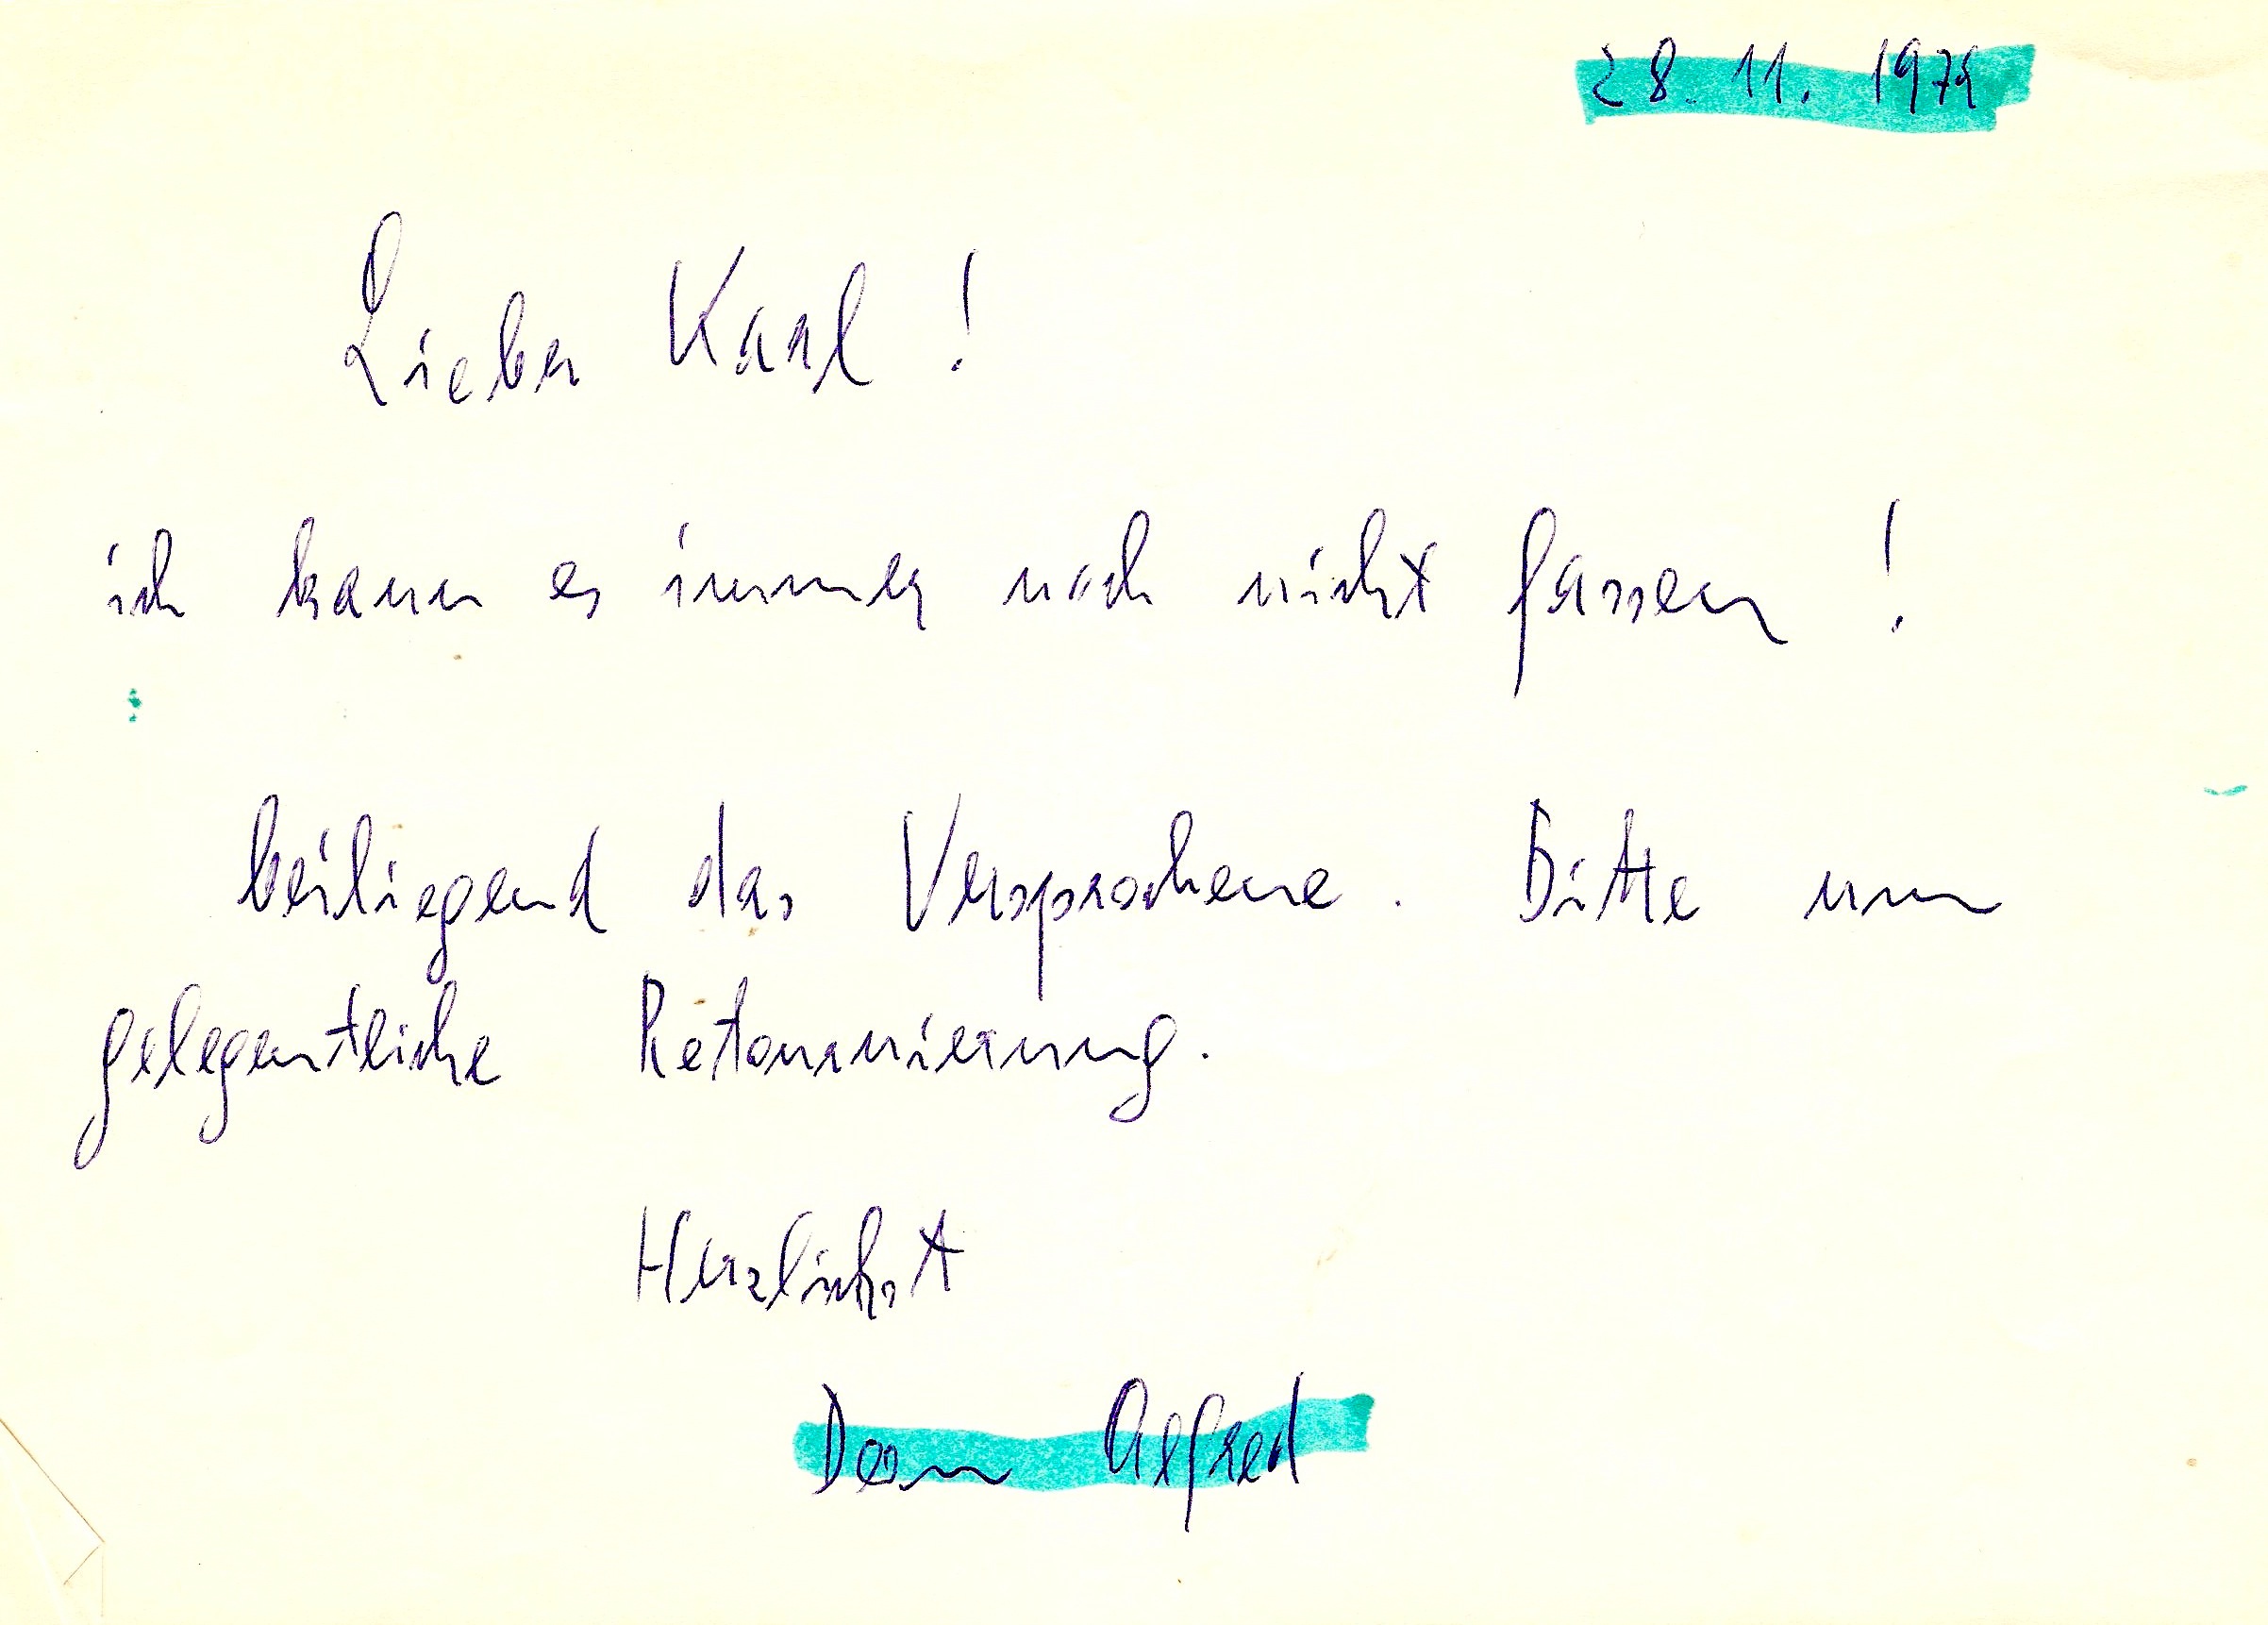 28. 11. 1979
Lieber Karl !
ich kann es immer noch nicht fassen !
beiliegend das Versprochene . Bitte um
gelegentliche Retournierung .
Herzlichst
Dein Alfred